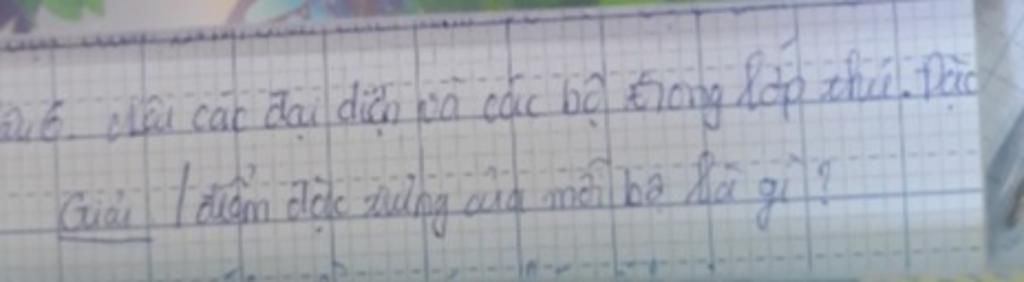 Câu 6. Nêu các đại diện của các bộ trong lớp thú. Đặc
Giải / điểm đặc trưng của mỗi bộ là gì?